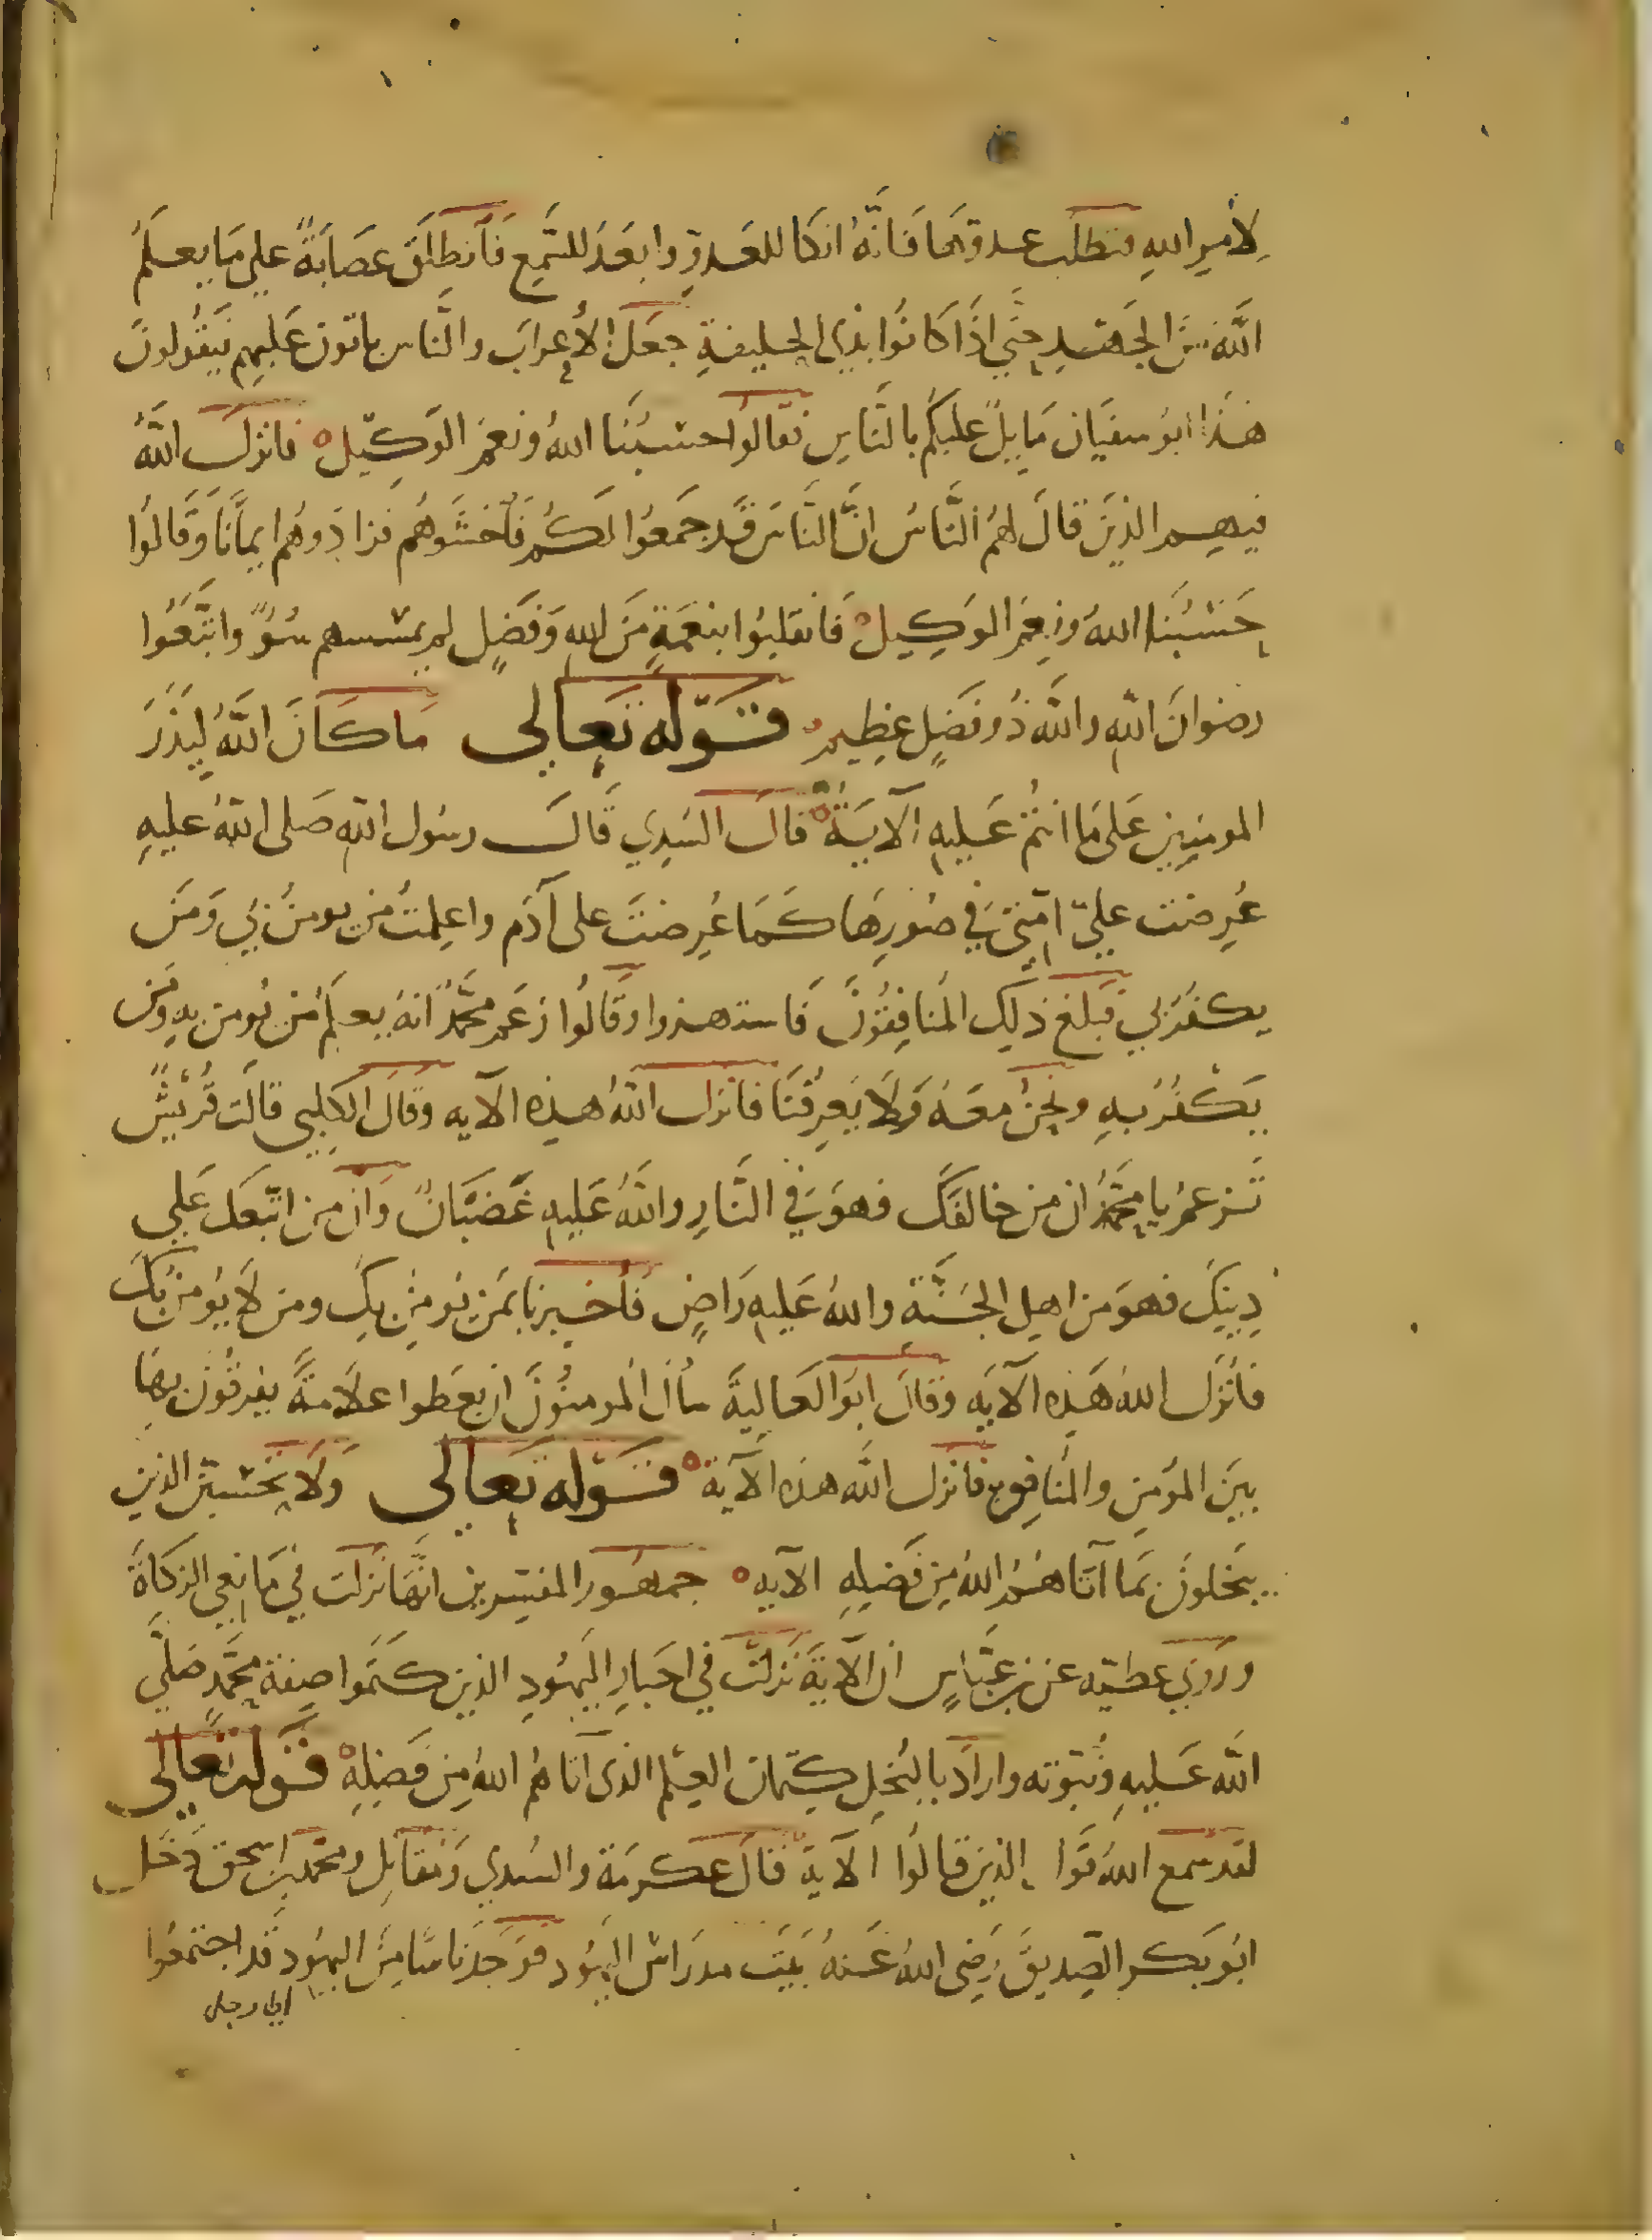 لأمر الله فتطلب عدوها فانه انكا للعدو وابعد للسمع فانطلق عصابة على ما يعلم
الله من الجهد حتى اذا كانوا بذي الحليفة جعل الأعراب والناس ياتون عليهم فيقولون
هذا ابو سفيان مايل عليكم بالناس فقالوا حسبنا الله ونعم الوكيل فانزل الله
فيهم الذين قال لهم الناس ان الناس قد جمعوا لكم فاخشوهم فزادهم ايمانا وقالوا
حسبنا الله ونعم الوكيل فانقلبوا بنعمة من الله وفضل لم يمسسهم سوء واتبعوا
رضوان الله والله ذو فضل عظيم قوله تعالى ما كان الله ليذر
المومنين على ما انتم عليه الآية قال السدي قال رسول الله صلى الله عليه
عرضت علي امتي في صورها كما عرضت على آدم واعلمت من يومن بي ومن
يكفر بي فبلغ ذلك المنافقون فاستهزوا وقالوا زعم محمد انه يعلم من يومن به ومن
يكفر به ونحن معه ولا يعرفنا فانزل الله هذه الآيه وقال الكلبي قالت قريش
تزعم يا محمد ان من خالفك فهو في النار والله عليه غضبان وان من اتبعك على
دينك فهو من اهل الجنة والله عليه راض فأخبرنا بمن يومن بك ومن لا يومن بك
فأنزل الله هذه الآيه وقال ابو العالية سأل المومنون ان يعطوا علامة يفرقون بها
بين المؤمن والمنافق فانزل الله هذه الآية قوله تعالى ولا يحسبن الذين
يبخلون بما آتاهم الله من فضله الآيه جمهور المفسرين انها نزلت في مانعي الزكاة
وروى عطيه عن بن عباس ان الآية نزلت في احبار اليهود الذين كتموا صفة محمد صلى
الله عليه ونبوته واراد بالبخل كتمان العلم الذى آتاهم الله من فضله قوله تعالى
لقد سمع الله قول الذين قالوا الآية قال عكرمة والسدي ومقاتل ومحمد بن اسحق دخل
ابو بكر الصديق رضى الله عنه بيت مدراس اليهود فوجد ناسا من اليهود قد اجتمعوا
الى رجل